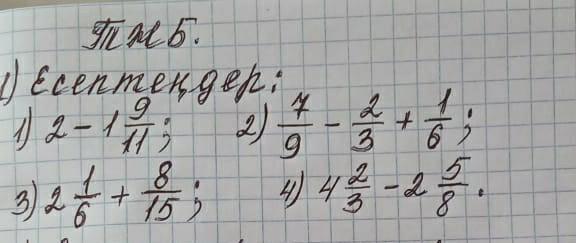 ТЖБ.
1) Есептеңдер:
1) 2 - 1 9/11; 2) 7/9 - 2/3 + 1/6;
3) 2 1/6 + 8/15; 4) 4 2/3 - 2 5/8.